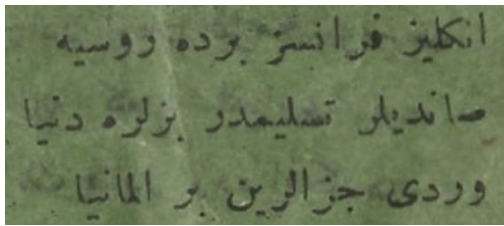 انكليز فرانسز برده روسيه
صانديلر تسليمدر بزلره دنيا
وردى جزالرين بر المانيا